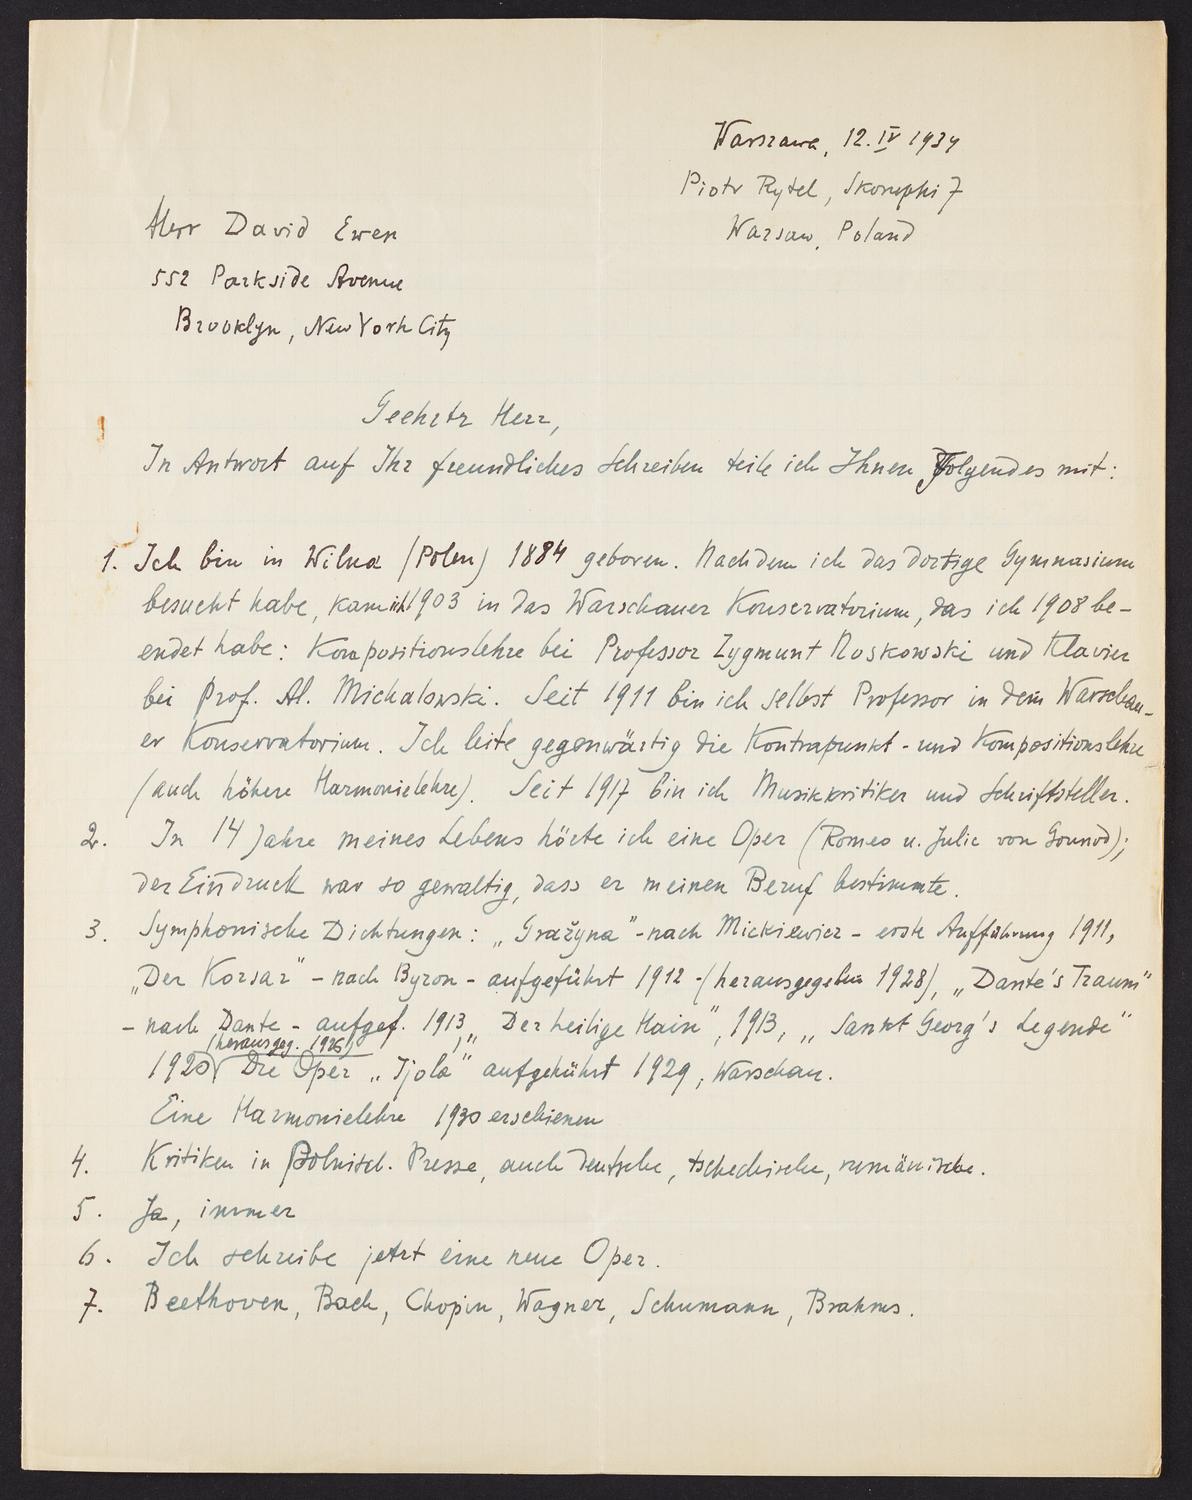 Warszawa, 12. IV 1934
Piotr Rytel, Skorupki 7
Warsaw, Poland
Herr David Ewen
552 Parkside Avenue
Brooklyn, New York City
Geehrtr Herr,
In Antwort auf Ihr freundliches Schreiben teile ich Ihnen Folgendes mit:
1. Ich bin in Wilna (Polen) 1884 geboren. Nachdem ich das dortige Gymnasium
besucht habe, kam ich 1903 in das Warschauer Konservatorium, das ich 1908 be-
endet habe: Kompositionslehre bei Professor Zygmunt Noskowski und Klavier
bei Prof. Al. Michalowski. Seit 1911 bin ich selbst Professor in dem Warschau-
er Konservatorium. Ich leite gegenwärtig die Kontrapunkt- und Kompositionslehre
(auch höhere Harmonielehre). Seit 1917 bin ich Musikkritiker und Schriftsteller.
2. In 14 Jahre meines Lebens hörte ich eine Oper (Romeo u. Julie von Gounod);
der Eindruck war so gewaltig, dass er meinen Beruf bestimmte.
3. Symphonische Dichtungen: „Grażyna" - nach Mickiewicz - erste Aufführung 1911,
„Der Korsar" - nach Byron - aufgeführt 1912 - (herausgegeben 1928), „Dante's Traum"
- nach Dante - aufgef. 1913, „Der heilige Hain", 1913, „Sankt Georg's Legende"
(herausgeg. 1926)
1920 Die Oper „Ijola" aufgeführt 1929, Warschau.
Eine Harmonielehre 1930 erschienen
4. Kritiken in Polnisch. Presse, auch deutsche, tschechische, rumänische.
5. Ja, immer
6. Ich schreibe jetzt eine neue Oper.
7. Beethoven, Bach, Chopin, Wagner, Schumann, Brahms.